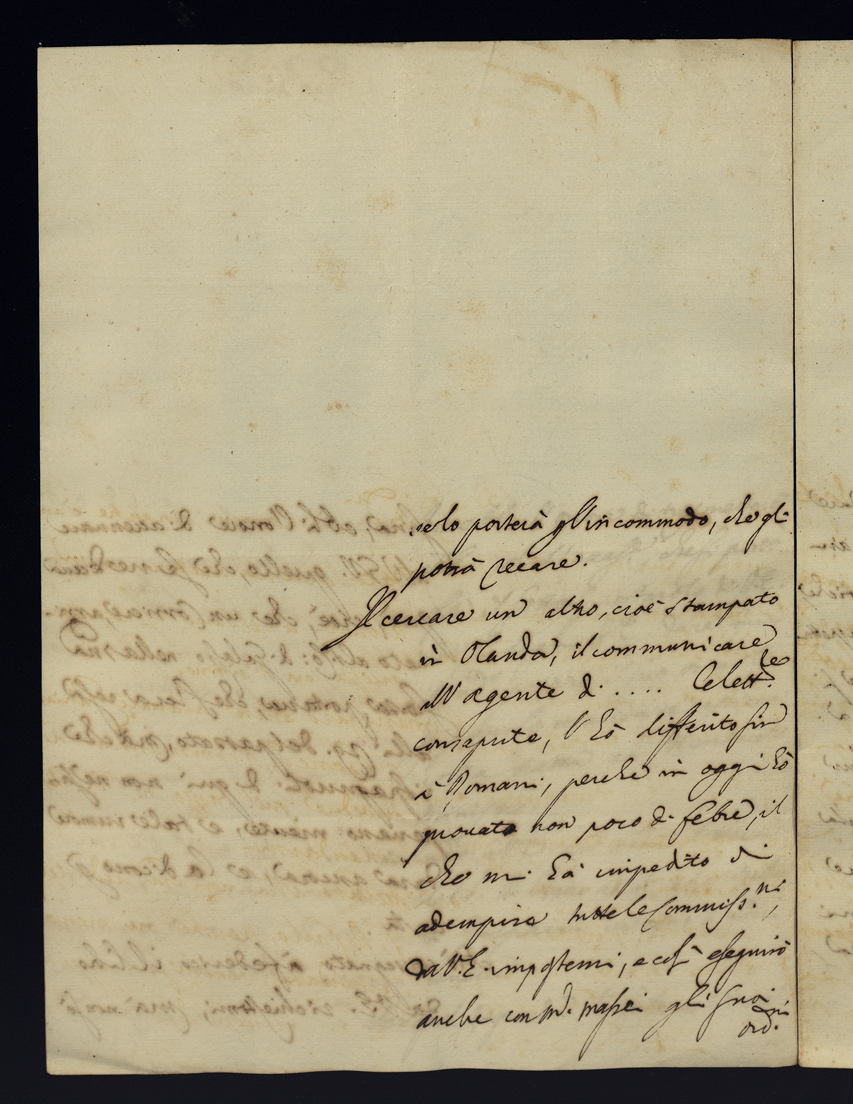 se lo porterà gl'incommodo, che gli
potrà recare.
Il cercare un altro, cioè stampato
in Olanda, il communicare
all'Agente di .... le lett.re
consapute, l'hò differito sin
à Domani, perche in oggi hò
prouato non poco di febre, il
che mi hà impedito di
adempire tutte le Commiss.ni,
da V.E. impostemi, e così eseguirò
anche con M.r Massei gli suoi
ord.ni